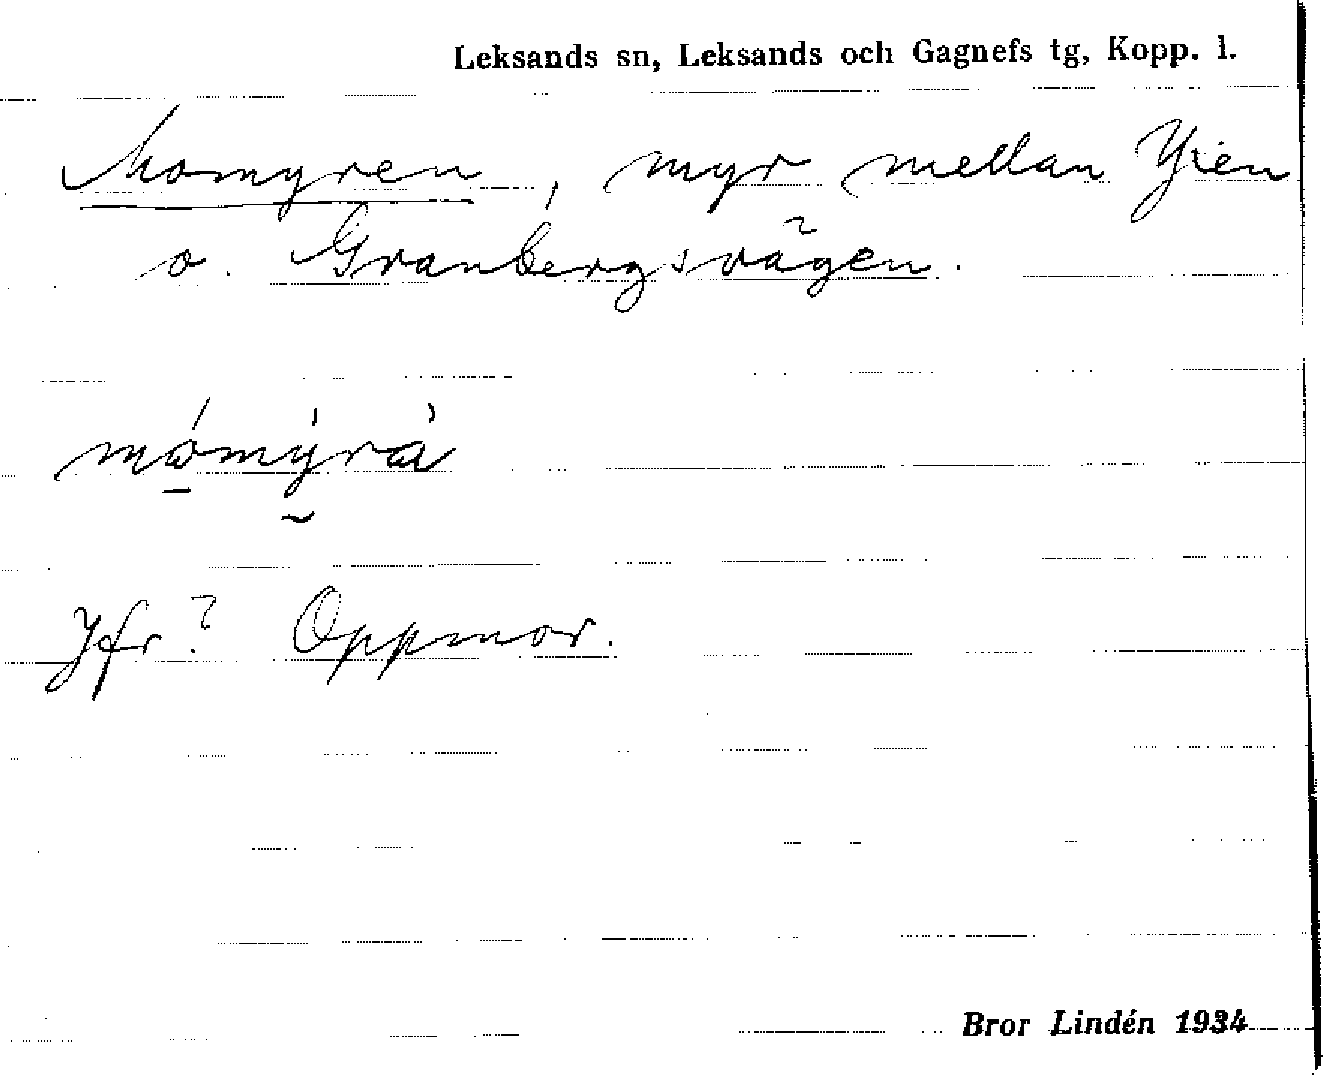 Leksands sn, Leksands och Gagnefs tg, Kopp. l.
Momyren, myr mellan Yien
o. Granbergsvägen.
mo̱mýrá
Jfr? Oppmor.
Bror Lindén 1934